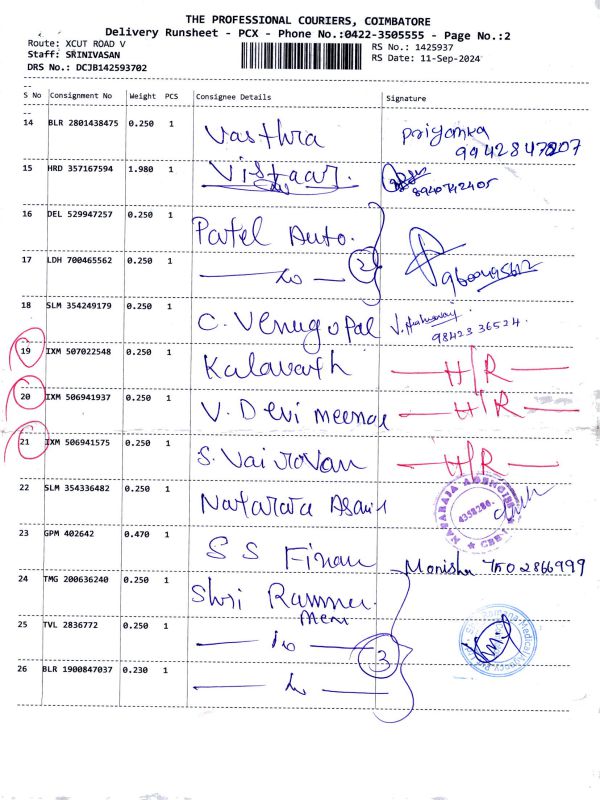 THE PROFESSIONAL COURIERS, COIMBATORE
Delivery Runsheet - PCX - Phone No.:0422-3505555 - Page No.:2
Route: XCUT ROAD V
Staff: SRINIVASAN
DRS No.: DCJB142593702
RS No.: 1425937
RS Date: 11-Sep-2024
S No Consignment No Weight PCS Consignee Details Signature
14 BLR 2801438475 0.250 1 Vasthra Priyanka
9942847207
15 HRD 357167594 1.980 1 Vistaar.
8940742405
16 DEL 529947257 0.250 1 Patel Auto.
17 LDH 700465562 0.250 1 2 9600495612
18 SLM 354249179 0.250 1 C. Venugopal
98423 36524
19 IXM 507022548 0.250 1 Kalavath H/R
20 IXM 506941937 0.250 1 V. Devi meenae H/R
21 IXM 506941575 0.250 1 S. Vairavan H/R
22 SLM 354336482 0.250 1 NATARAJA AGENCIES
4358286.
CBE-1
23 GPM 402642 0.470 1 S S Finan Monisha 7502866999
24 TMG 200636240 0.250 1 Shri
25 TVL 2836772 0.250 1 3
26 BLR 1900847037 0.230 1